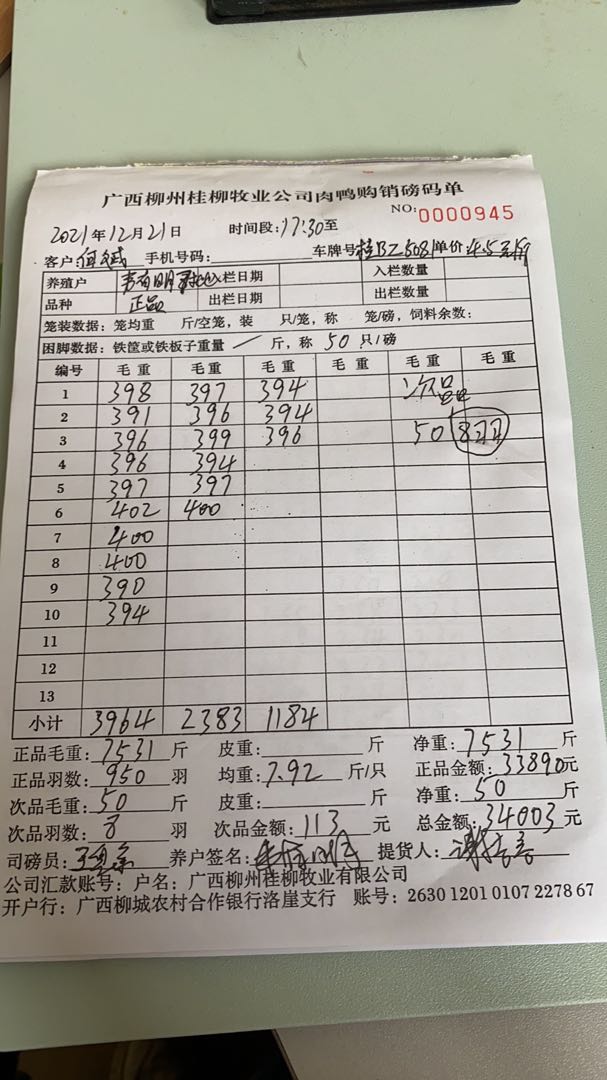 广西柳州桂柳牧业公司肉鸭购销磅码单
NO:0000945
2021年12月21日 时间段:17:30至
客户: 手机号码: 车牌号桂BZ508单价4.5元/斤
养殖户 韦有明 入栏日期 入栏数量
品种 正品 出栏日期 出栏数量
笼装数据: 笼均重 斤/空笼, 装 只/笼, 称 笼/磅, 饲料余数:
困脚数据: 铁筐或铁板子重量 / 斤, 称 50 只/磅
编号 毛重 毛重 毛重 毛重 毛重 毛重
1 398 397 394 次品
2 391 396 394
3 396 399 396 50 8羽
4 396 394
5 397 397
6 402 400
7 400
8 400
9 390
10 394
11
12
13
小计 3964 2383 1184
正品毛重: 7531 斤 皮重: 斤 净重: 7531 斤
正品羽数: 950 羽 均重: 7.92 斤/只 正品金额: 33890元
次品毛重: 50 斤 皮重: 斤 净重: 50 斤
次品羽数: 8 羽 次品金额: 113 元 总金额: 34003元
司磅员: 养户签名: 提货人:
公司汇款账号: 户名: 广西柳州桂柳牧业有限公司
开户行: 广西柳城农村合作银行洛崖支行 账号: 2630 1201 0107 2278 67